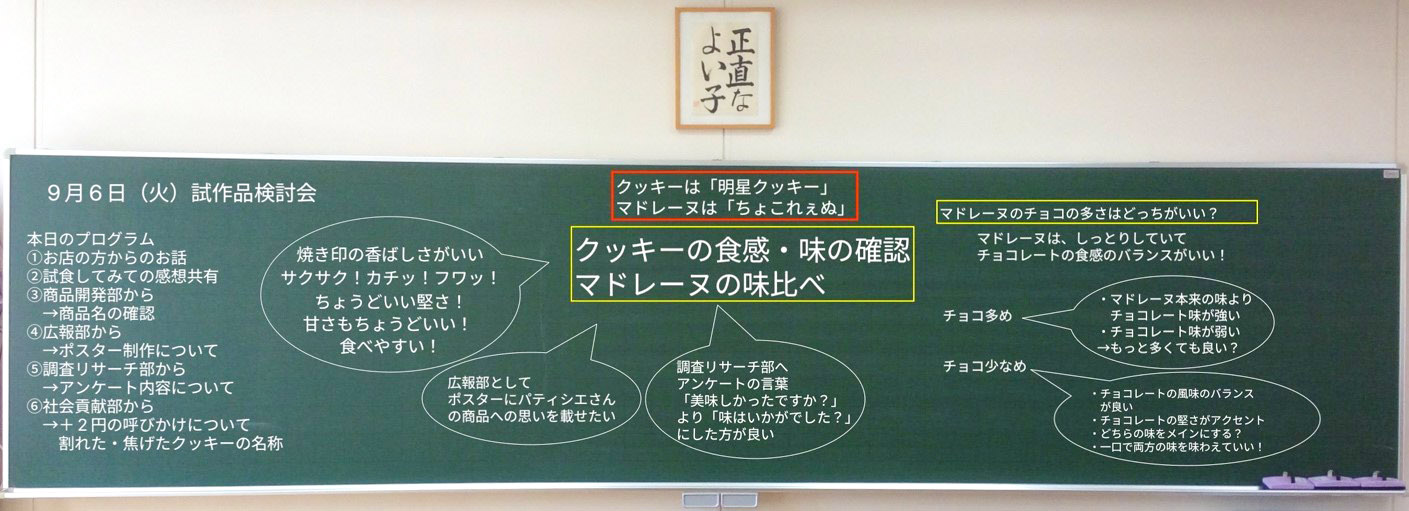 正直な
よい子
９月６日（火）試作品検討会
本日のプログラム
①お店の方からのお話
②試食してみての感想共有
③商品開発部から
→商品名の確認
④広報部から
→ポスター制作について
⑤調査リサーチ部から
→アンケート内容について
⑥社会貢献部から
→＋２円の呼びかけについて
割れた・焦げたクッキーの名称
焼き印の香ばしさがいい
サクサク！カチッ！フワッ！
ちょうどいい堅さ！
甘さもちょうどいい！
食べやすい！
クッキーは「明星クッキー」
マドレーヌは「ちょこれぇぬ」
クッキーの食感・味の確認
マドレーヌの味比べ
広報部として
ポスターにパティシエさん
の商品への思いを載せたい
調査リサーチ部へ
アンケートの言葉
「美味しかったですか？」
より「味はいかがでした？」
にした方が良い
マドレーヌのチョコの多さはどっちがいい？
マドレーヌは、しっとりしていて
チョコレートの食感のバランスがいい！
チョコ多め
・マドレーヌ本来の味より
チョコレート味が強い
・チョコレート味が弱い
→もっと多くても良い？
チョコ少なめ
・チョコレートの風味のバランス
が良い
・チョコレートの堅さがアクセント
・どちらの味をメインにする？
・一口で両方の味を味わえていい！